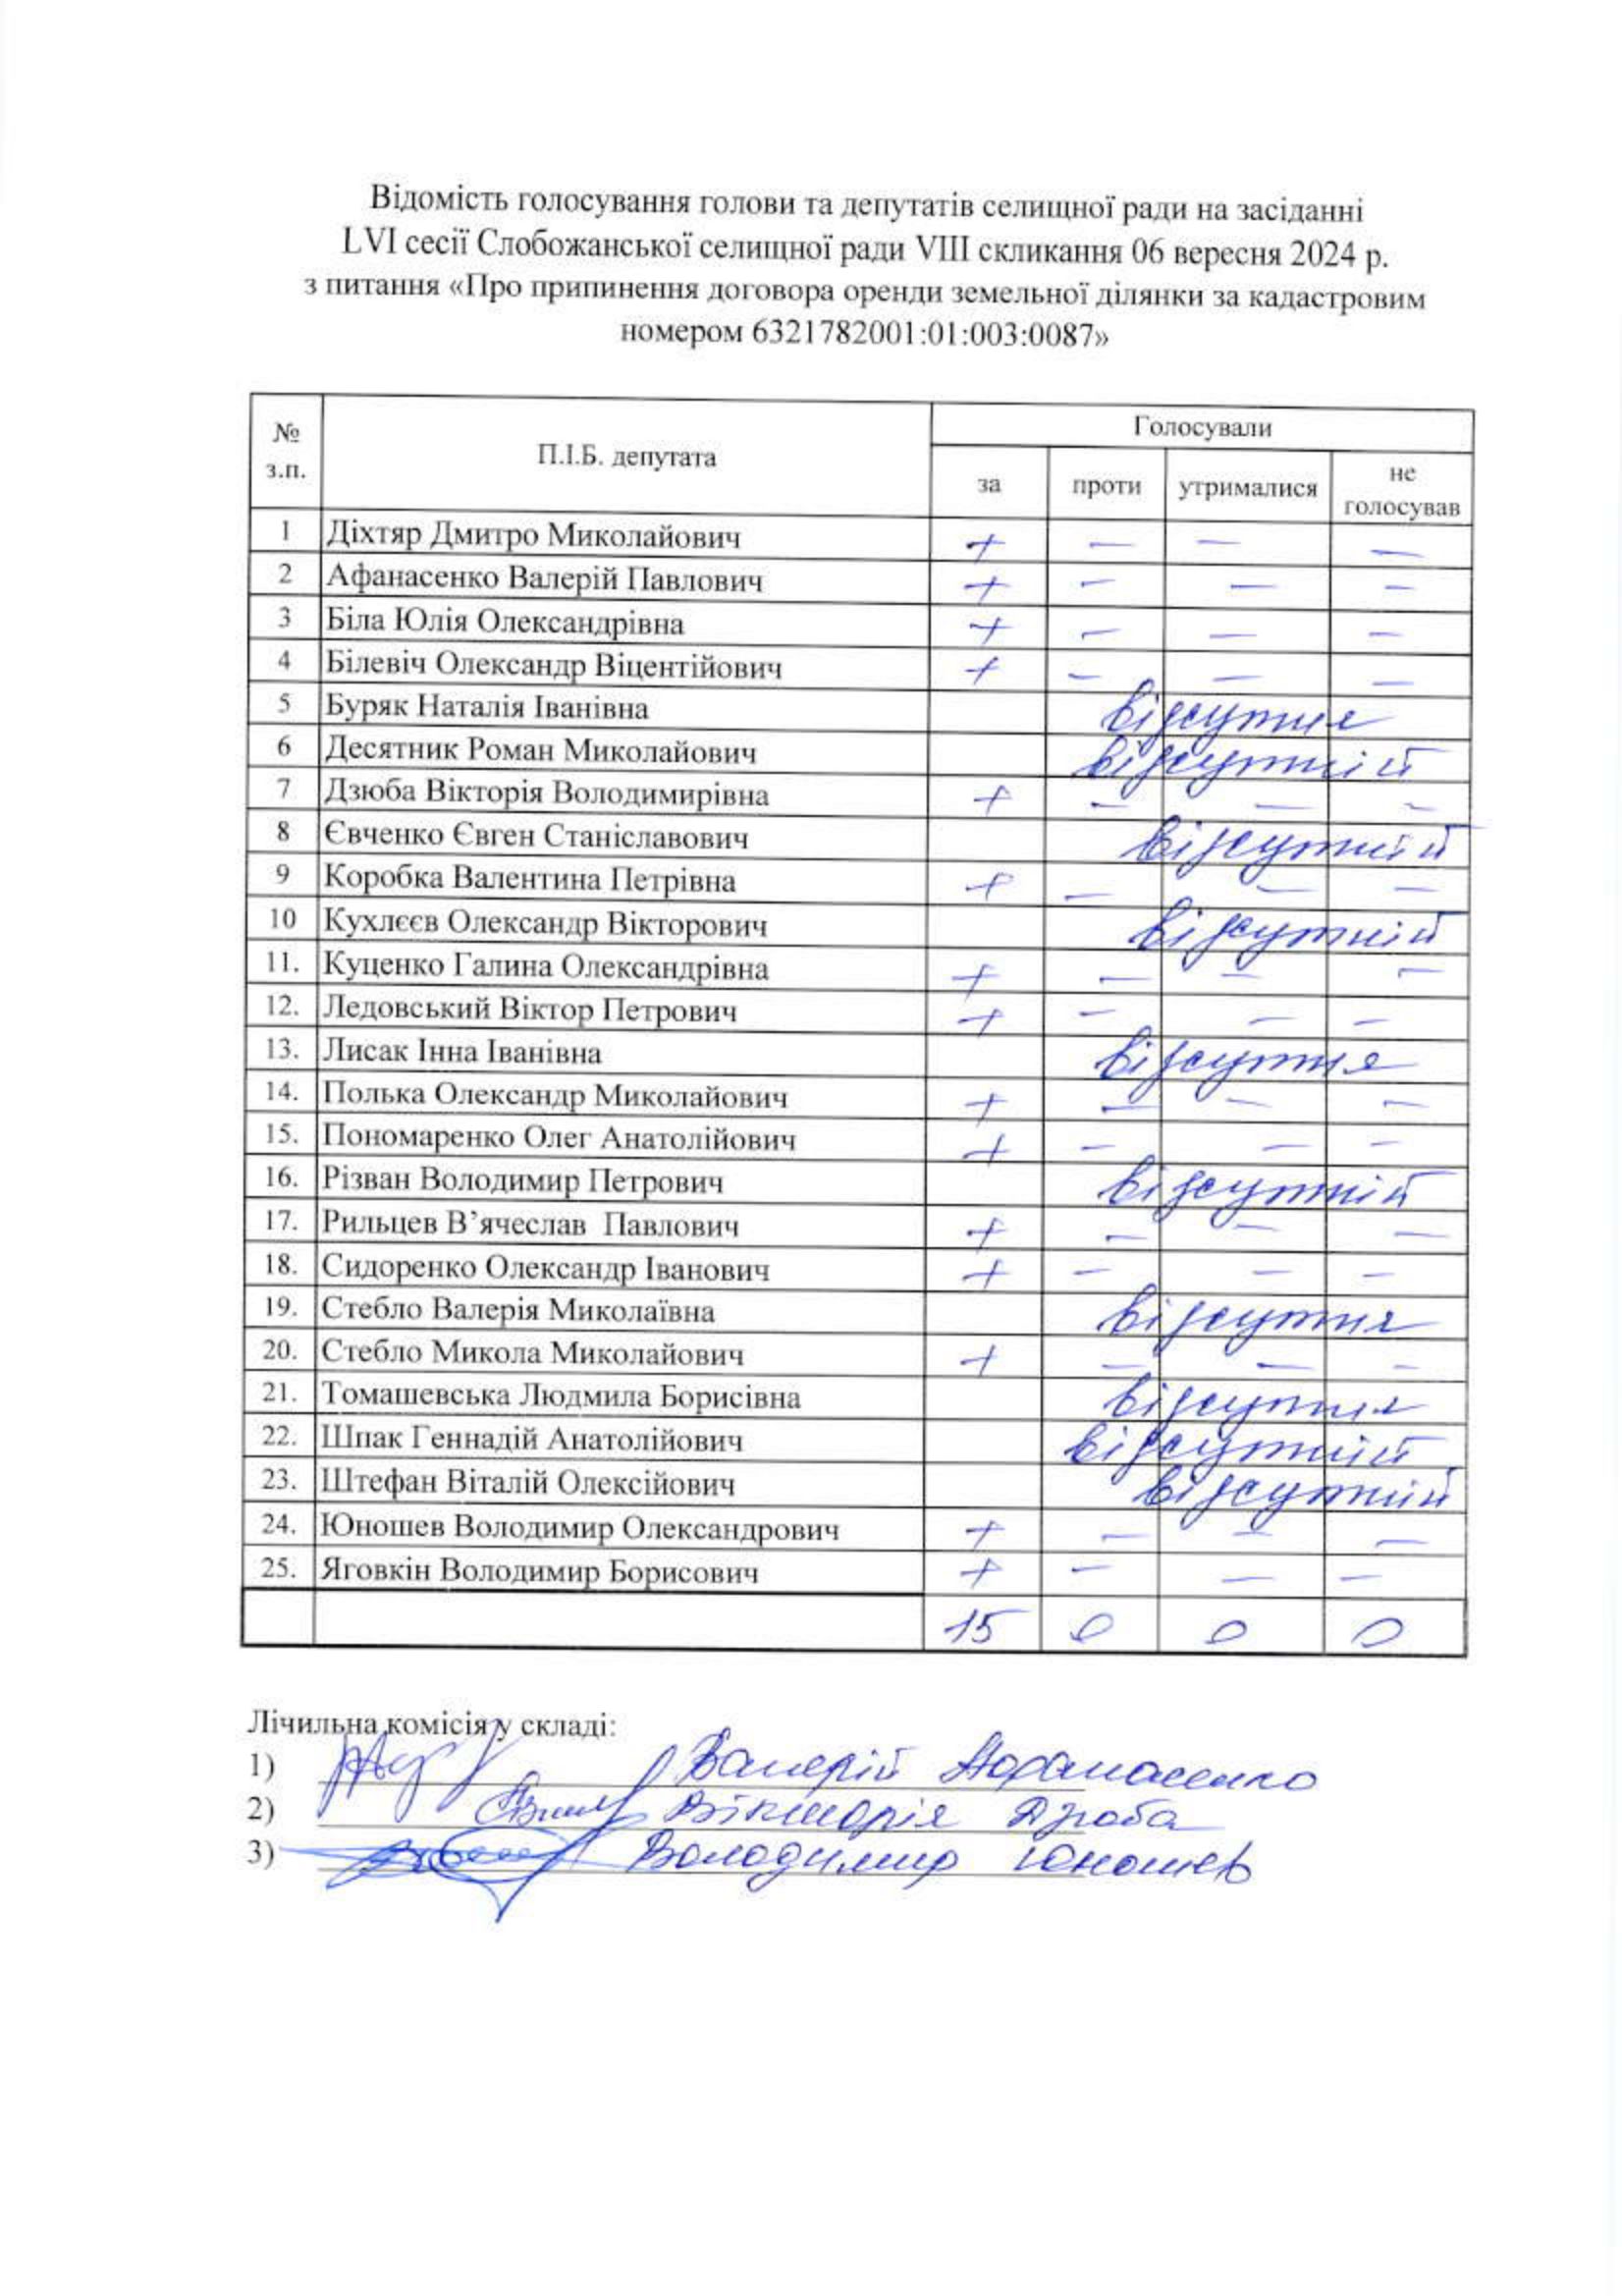 Відомість голосування голови та депутатів селищної ради на засіданні
LVI сесії Слобожанської селищної ради VIII скликання 06 вересня 2024 р.
з питання «Про припинення договора оренди земельної ділянки за кадастровим
номером 6321782001:01:003:0087»
№ з.п. П.І.Б. депутата Голосували
за проти утрималися не голосував
1 Діхтяр Дмитро Миколайович + – – –
2 Афанасенко Валерій Павлович + – – –
3 Біла Юлія Олександрівна + – – –
4 Білевіч Олександр Віцентійович + – – –
5 Буряк Наталія Іванівна відсутня
6 Десятник Роман Миколайович відсутній
7 Дзюба Вікторія Володимирівна + – – –
8 Євченко Євген Станіславович відсутній
9 Коробка Валентина Петрівна + – – –
10 Кухлєєв Олександр Вікторович відсутній
11. Куценко Галина Олександрівна + – – –
12. Ледовський Віктор Петрович + – – –
13. Лисак Інна Іванівна відсутня
14. Полька Олександр Миколайович + – – –
15. Пономаренко Олег Анатолійович + – – –
16. Різван Володимир Петрович відсутній
17. Рильцев В’ячеслав Павлович + – – –
18. Сидоренко Олександр Іванович + – – –
19. Стебло Валерія Миколаївна відсутня
20. Стебло Микола Миколайович + – – –
21. Томашевська Людмила Борисівна відсутня
22. Шпак Геннадій Анатолійович відсутній
23. Штефан Віталій Олексійович відсутній
24. Юношев Володимир Олександрович + – – –
25. Яговкін Володимир Борисович + – – –
15 0 0 0
Лічильна комісія у складі:
1) Валерій Афанасенко
2) Вікторія Дзюба
3) Володимир Юношев